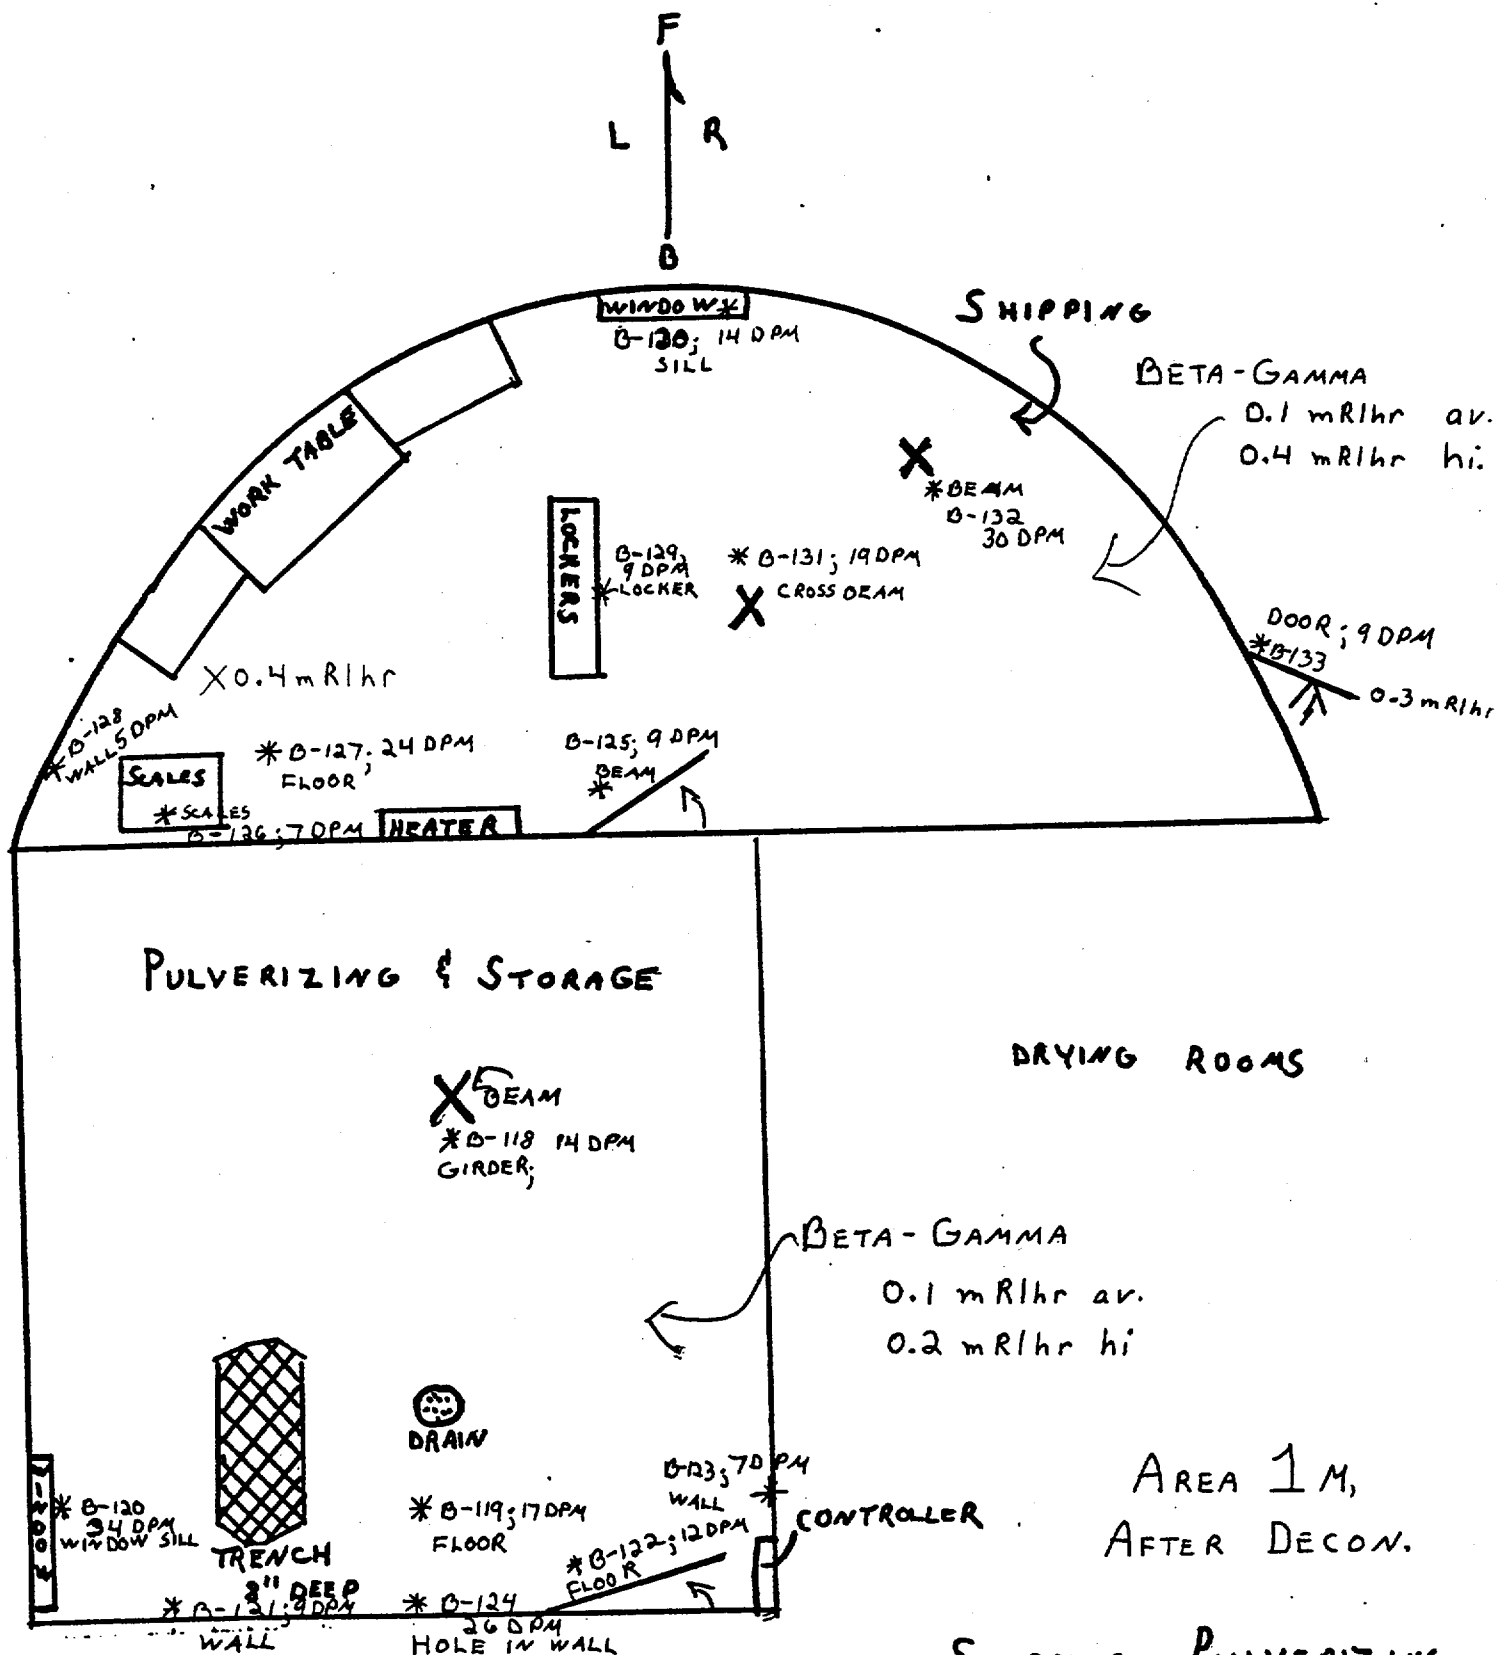 F
L R
B
WINDOW*
B-130; 14 DPM
SILL
SHIPPING
BETA-GAMMA
0.1 mR/hr av.
0.4 mR/hr hi.
WORK TABLE
LOCKERS
B-129,
9 DPM
*LOCKER
* B-131; 19 DPM
CROSS BEAM
*BEAM
B-132
30 DPM
DOOR; 9 DPM
*B-133
0.3 mR/hr
X0.4 mR/hr
* B-128
WALL 5 DPM
SCALES
*SCALES
B-126; 7 DPM
* B-127; 24 DPM
FLOOR
HEATER
B-125; 9 DPM
BEAM
*
PULVERIZING & STORAGE
DRYING ROOMS
X BEAM
*B-118 14 DPM
GIRDER;
BETA-GAMMA
0.1 mR/hr av.
0.2 mR/hr hi
DRAIN
WINDOW
* B-120
34 DPM
WINDOW SILL
TRENCH
DEEP
* B-121; 9 DPM
WALL
* B-119; 17 DPM
FLOOR
* B-124
26 DPM
HOLE IN WALL
* B-122; 12 DPM
FLOOR
B-123; 7 DPM
WALL *
CONTROLLER
AREA 1M,
AFTER DECON.
PULVERIZING